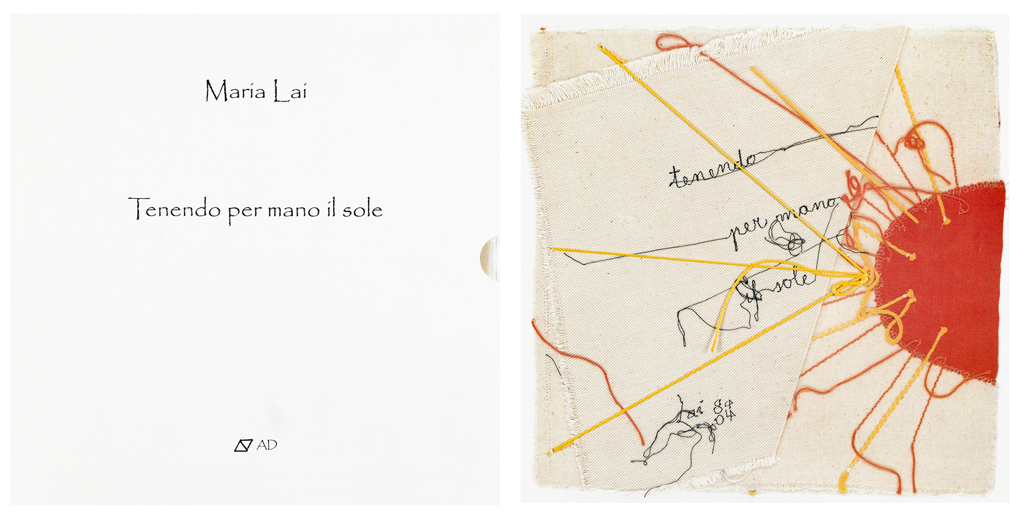 Maria Lai
Tenendo per mano il sole
AD
tenendo
per mano
il sole
Lai 84
04